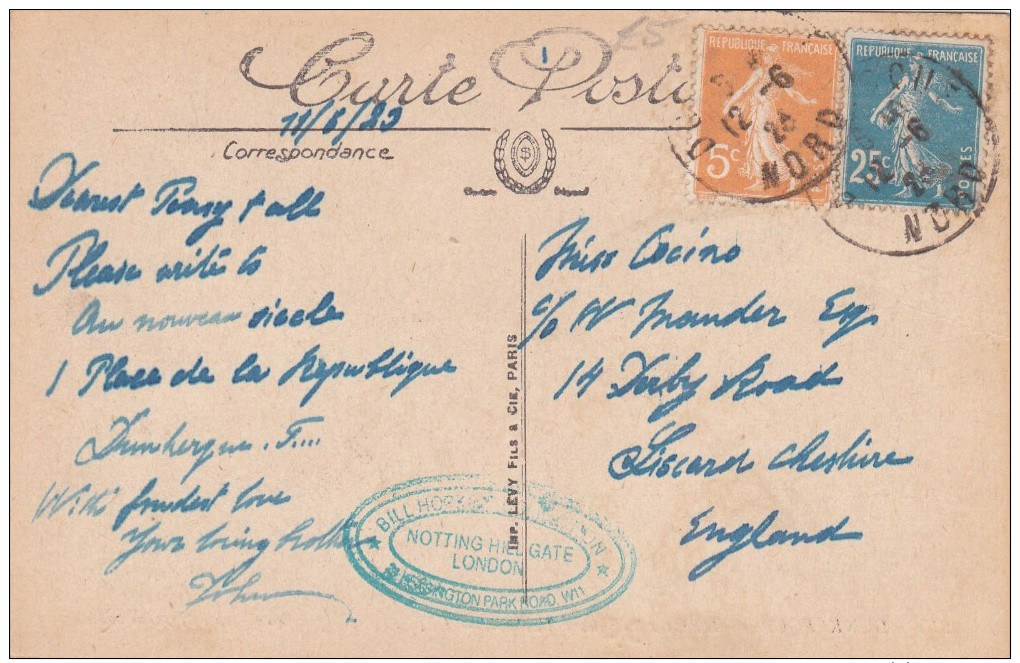 Carte Posta
£5
1
11/6/23
Correspondance
$
REPUBLIQUE FRANÇAISE
5c
REPUBLIQUE FRANÇAISE
25c
POSTES
12 -6
23
NORD
NORD
Dearest Peasy & all
Please write to
Au nouveau siecle
1 Place de la Republique
Dunkerque. F....
With fondest love
Yours loving
John
IMP. LÉVY FILS & CIE, PARIS
Miss Cocino
c/o W Mander Esq
14 Derby Road
Liscard Cheshire
England
BILL
NOTTING HILL GATE
LONDON
KENSINGTON PARK ROAD, W11